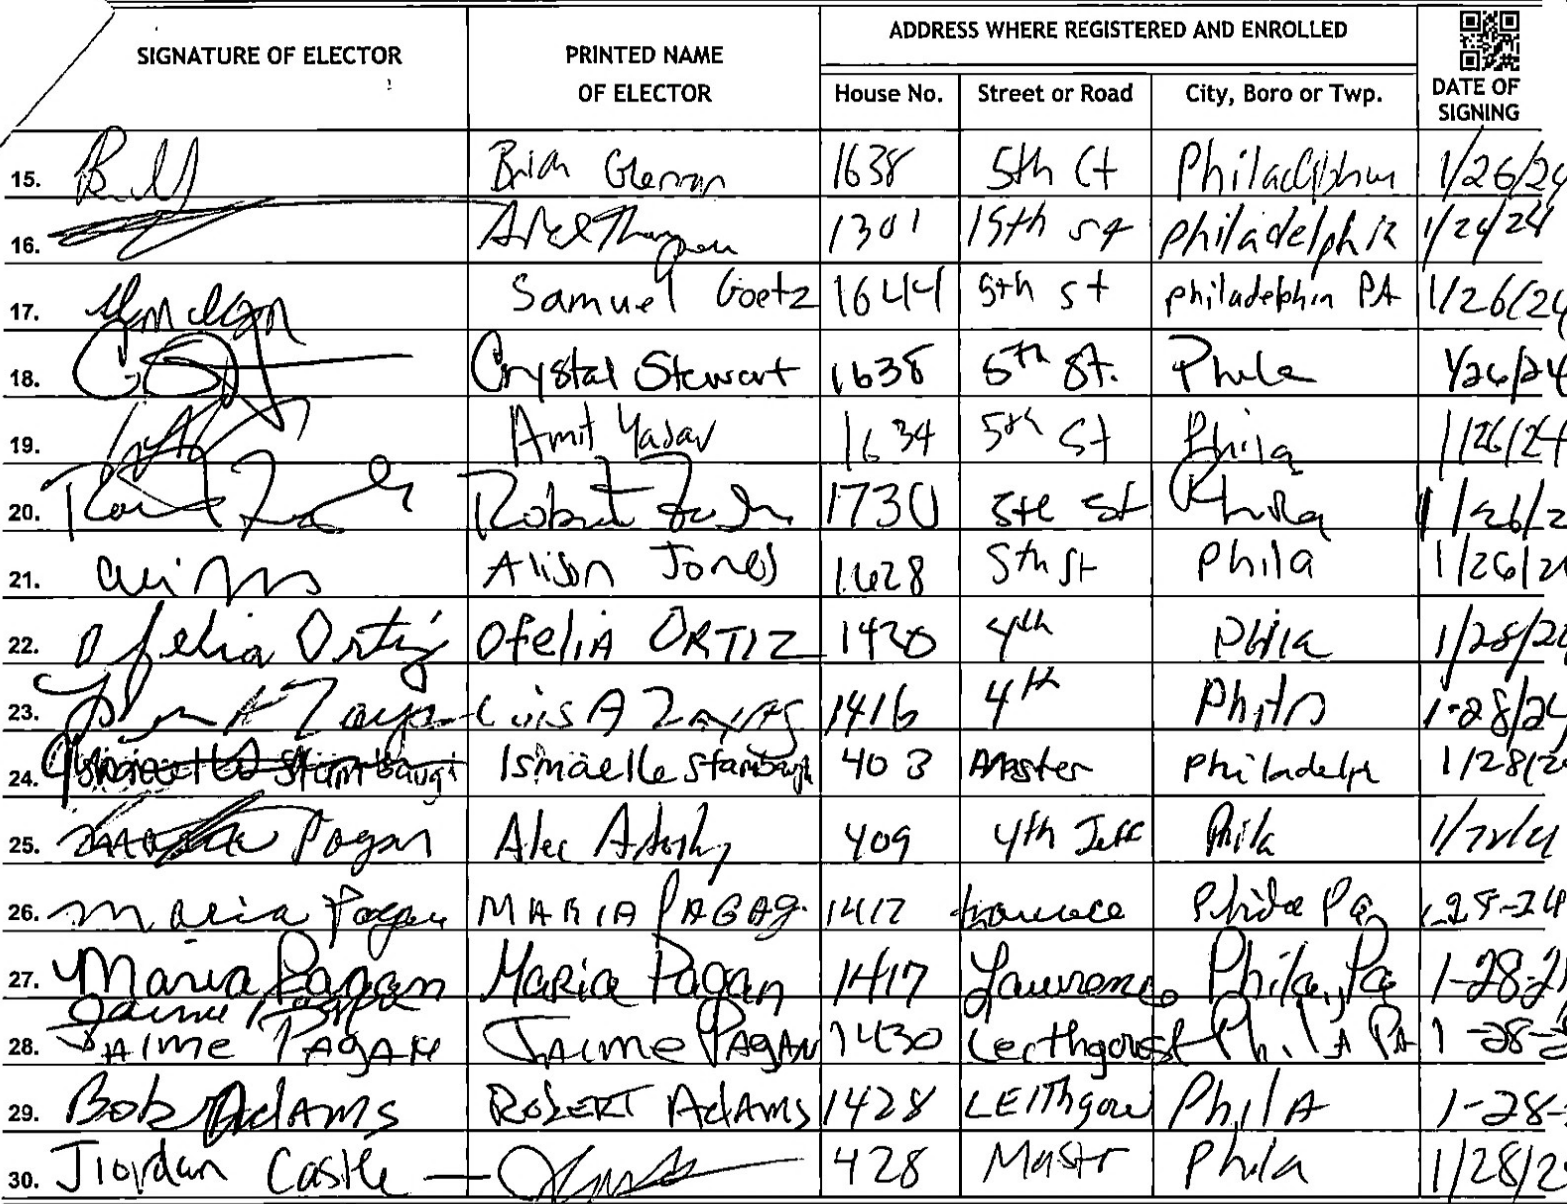 SIGNATURE OF ELECTOR PRINTED NAME OF ELECTOR ADDRESS WHERE REGISTERED AND ENROLLED DATE OF SIGNING
House No. Street or Road City, Boro or Twp.
15. 1638 5th Ct 1/26/24
16. 1301 15th st philadelphia
17. Samuel Goetz 1644 5th st philadelphia PA 1/26/24
18. Crystal Stewart 1638 5th St. Phila 1/26/24
19. Amit Yadav 1634 5th St Phila 1/26/24
20. Robert 1730 5th St Phila 1/26/2
21. Alison Jones 1628 5th St Phila 1/26/2
22. Ofelia Ortiz OfeliA ORTIZ 1420 4th Phila 1/28/2
23. Luis A Zayas 1416 4th Phila 1-28/2
24. Stambaugh Ismaelle Stambaugh 403 Master Philadelph 1/28/2
25. Pagan Alec 409 4th Jeff Phila
26. Maria Pagan MARIA PAGAg. 1417 Phila Pa
27. Maria Pagan Maria Pagan 1417 Lawrence Phila, Pa 1-28-2
28. JAIME PAGAN JAime PAgAN 1430 PhilA PA 1-28-
29. Bob AdAMS RObERT AdAMS 1428 LEIThgow PhilA 1-28-
30. Jiordan Castle 428 Mastr Phila 1/28/2